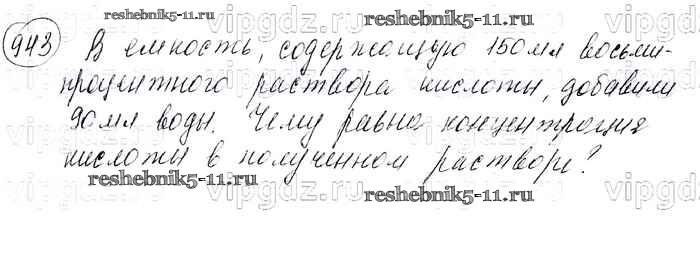 reshebnik5-11.ru
943 В емкость, содержащую 150 мл восьми-
процентного раствора кислоты, добавили
90 мл воды. Чему равна концентрация
кислоты в полученном растворе?
reshebnik5-11.ru
reshebnik5-11.ru
vipgdz.ru